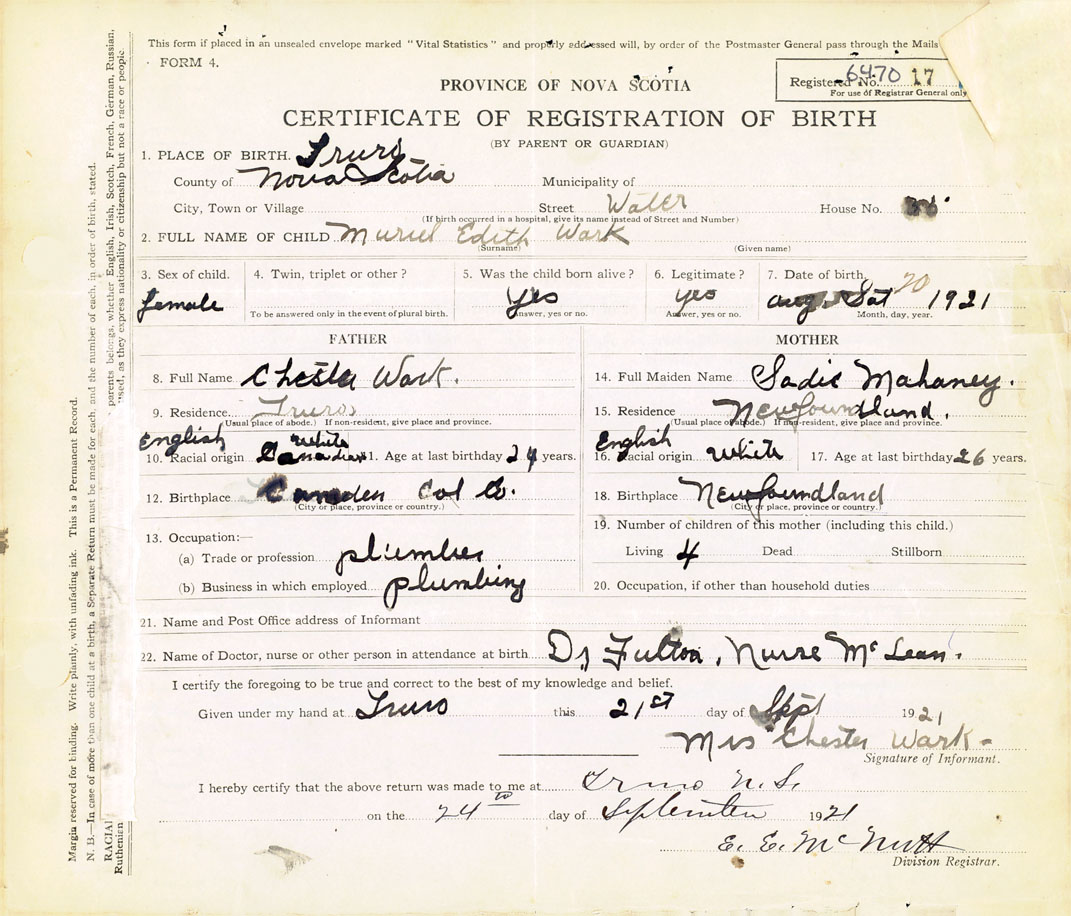 This form if placed in an unsealed envelope marked "Vital Statistics" and properly addressed will, by order of the Postmaster General pass through the Mails
FORM 4.
PROVINCE OF NOVA SCOTIA
Registered No. 6470 17
For use of Registrar General only
CERTIFICATE OF REGISTRATION OF BIRTH
(BY PARENT OR GUARDIAN)
1. PLACE OF BIRTH. Truro
County of Nova Scotia Municipality of
City, Town or Village Street Water House No.
(If birth occurred in a hospital, give its name instead of Street and Number)
2. FULL NAME OF CHILD Muriel Edith Wark
(Surname) (Given name)
3. Sex of child. 4. Twin, triplet or other? 5. Was the child born alive? 6. Legitimate? 7. Date of birth.
female Yes yes Aug. Sat 20 1921
To be answered only in the event of plural birth. Answer, yes or no. Answer, yes or no. Month, day, year.
FATHER
8. Full Name Chester Wark.
9. Residence Truro
(Usual place of abode.) If non-resident, give place and province.
English White
10. Racial origin Canadian 11. Age at last birthday 24 years.
12. Birthplace Camden Col Co.
(City or place, province or country.)
13. Occupation:—
(a) Trade or profession plumber
(b) Business in which employed plumbing
MOTHER
14. Full Maiden Name Sadie Mahaney.
15. Residence Newfoundland.
(Usual place of abode.) If non-resident, give place and province.
English
16. Racial origin White 17. Age at last birthday 26 years.
18. Birthplace Newfoundland
(City or place, province or country.)
19. Number of children of this mother (including this child.)
Living 4 Dead Stillborn
20. Occupation, if other than household duties
21. Name and Post Office address of Informant
22. Name of Doctor, nurse or other person in attendance at birth Dr Fulton, Nurse McLean.
I certify the foregoing to be true and correct to the best of my knowledge and belief.
Given under my hand at Truro this 21st day of Sept 1921
Mrs Chester Wark
Signature of Informant.
I hereby certify that the above return was made to me at Truro N.S.
on the 24th day of September 1921
E. E. McNutt
Division Registrar.
Margin reserved for binding. Write plainly, with unfading ink. This is a Permanent Record.
N. B.—In case of more than one child at a birth, a Separate Return must be made for each, and the number of each, in order of birth, stated.
RACIAL parents belongs, whether English, Irish, Scotch, French, German, Russian,
Ruthenian used, as they express nationality or citizenship but not a race or people